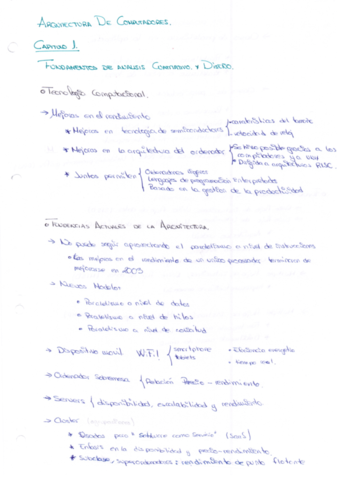 ARQUITECTURA DE COMPUTADORES.
CAPITULO 1.
FUNDAMENTOS DE ANALISIS CUANTITATIVO Y DISEÑO.
Tecnología Computacional.
→ Mejoras en el rendimiento
* Mejoras en tecnología de semiconductores
velocidad de reloj
* Mejoras en la arquitectura del ordenador
compiladores y a UNIX
arquitectura RISC.
* Juntos permiten
Ordenadores ligeros
Lenguajes de programación interpretados
Basado en la gestión de la productividad
TENDENCIAS ACTUALES DE LA ARQUITECTURA.
→ No puede seguir aprovechando el paralelismo a nivel de instrucciones
• Las mejoras en el rendimiento de un único procesador terminaron de
mejorarse en 2003
→ Nuevos Modelos
• Paralelismo a nivel de datos
• Paralelismo a nivel de hilos
• Paralelismo a nivel de
→ Dispositivo movil W.F.I
smartphone
tablets
• Eficiencia energética
• tiempo real.
→ Ordenador Sobremesa { Relación Precio - rendimiento
→ Servers { disponibilidad, escalabilidad y rendimiento
→ Cluster
* Usados para "Software como Servicio" (SaaS)
* Enfasis en la disponibilidad y precio-rendimiento
* Subclase: supercomputadoras: rendimiento de punto flotante